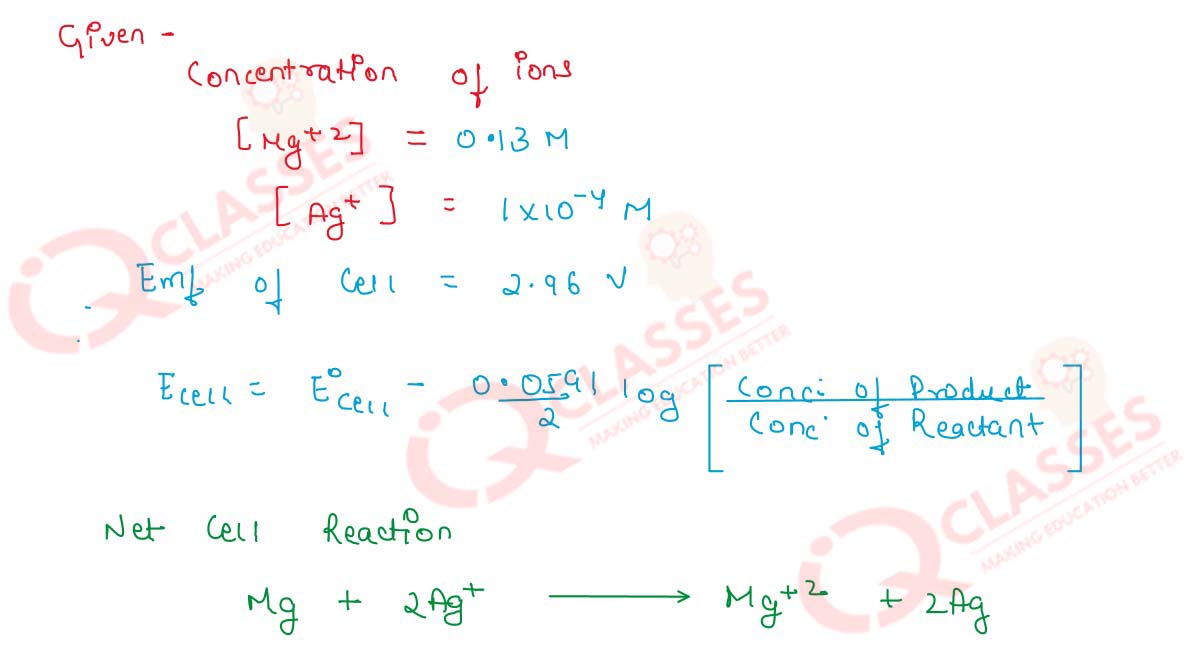 Given -
Concentration of ions
[Mg+2] = 0.13 M
[Ag+] = 1x10-4 M
Emf of Cell = 2.96 V
Ecell = E°cell - 0.0591/2 log [Conc. of Product / Conc. of Reactant]
Net Cell Reaction
Mg + 2Ag+ → Mg+2 + 2Ag
IQ CLASSES
MAKING EDUCATION BETTER
IQ CLASSES
MAKING EDUCATION BETTER
IQ CLASSES
MAKING EDUCATION BETTER